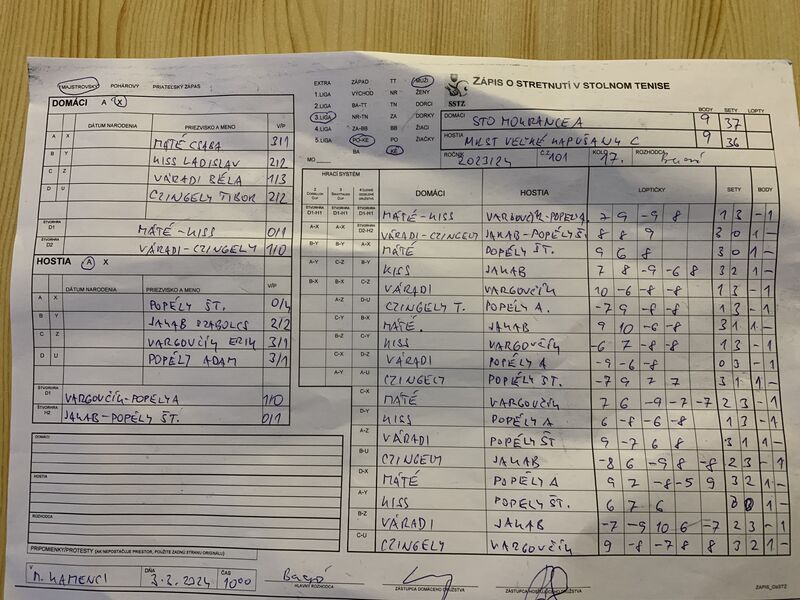 MAJSTROVSKÝ POHÁROVÝ PRIATEĽSKÝ ZÁPAS
DOMÁCI A X
DÁTUM NARODENIA PRIEZVISKO A MENO V/P
A X MÁTÉ CSABA 3/1
B Y KISS LADISLAV 2/2
C Z VÁRADI BÉLA 1/3
D U CZINGELY TIBOR 2/2
ŠTVORHRA D1 MÁTÉ-KISS 0/1
ŠTVORHRA D2 VÁRADI-CZINGELY 1/0
HOSTIA A X
DÁTUM NARODENIA PRIEZVISKO A MENO V/P
A X POPÉLY ŠT. 0/4
B Y JAKAB SZABOLCS 2/2
C Z VARGOVČÍK ERIK 3/1
D U POPÉLY ADAM 3/1
ŠTVORHRA D1 VARGOVČÍK-POPÉLY A 1/0
ŠTVORHRA H2 JAKAB-POPÉLY ŠT. 0/1
DOMÁCI
HOSTIA
ROZHODCA
PRIPOMIENKY/PROTESTY (AK NEPOSTAČUJE PRIESTOR, POUŽITE ZADNÚ STRANU ORIGINÁLU)
EXTRA ZÁPAD TT MUŽI
1.LIGA VÝCHOD NR ŽENY
2.LIGA BA-TT TN DORCI
3.LIGA NR-TN ZA DORKY
4.LIGA ZA-BB BB ŽIACI
5.LIGA PO-KE PO ŽIAČKY
MO BA KE
SSTZ
ZÁPIS O STRETNUTÍ V STOLNOM TENISE
BODY SETY LOPTY
DOMÁCI STO MOKRANCE A 9 37
HOSTIA MKST VEĽKÉ KAPUŠANY C 9 36
ROČNÍK 2023/24 Č.Z. 101 KOLO 17. ROZHODCA
HRACÍ SYSTÉM DOMÁCI HOSTIA LOPTIČKY SETY BODY
ŠTVORHRA D1-H1 ŠTVORHRA D1-H1 ŠTVORHRA D1-H1 MÁTÉ-KISS VARGOVČÍK-POPÉLY A 7 9 -9 8 1 3 - 1
A-X A-X ŠTVORHRA D2-H2 VÁRADI-CZINGELY JAKAB-POPÉLY ŠT. 8 8 9 3 0 1 -
B-Y B-Y A-X MÁTÉ POPÉLY ŠT. 9 6 8 3 0 1 -
A-Y C-Z B-Y KISS JAKAB 7 8 -9 -6 8 3 2 1 -
B-X B-X C-Z VÁRADI VARGOVČÍK 10 -6 -8 -8 1 3 - 1
A-Z D-U CZINGELY T. POPÉLY A. -7 9 -8 -8 1 3 - 1
C-Y B-X MÁTÉ. JAKAB 9 10 -6 -8 3 1 1 -
B-Z C-Y KISS VARGOVČÍK -6 7 -8 -8 1 3 - 1
C-X D-Z VÁRADI POPÉLY A -9 -6 -8 0 3 - 1
A-Y A-U CZINGELY POPÉLY ŠT. -7 9 7 7 3 1 1 -
C-X MÁTÉ VARGOVČÍK 7 6 -9 -7 -7 2 3 - 1
D-Y KISS POPÉLY A 6 -8 -6 -8 1 3 - 1
A-Z VÁRADI POPÉLY ŠT 9 -7 6 8 3 1 1 -
B-U CZINGELY JAKAB -8 6 -9 8 -8 2 3 - 1
D-X MÁTÉ POPÉLY A 9 7 -8 -5 9 3 2 1 -
A-Y KISS POPÉLY ŠT. 6 7 6 3 0 1 -
B-Z VÁRADI JAKAB -7 -9 10 6 -7 2 3 - 1
C-U CZINGELY VARGOVČÍK 9 -8 -7 8 8 3 2 1 -
V M. KAMENCI DŇA 3.2.2024 ČAS 1000
HLAVNÝ ROZHODCA ZÁSTUPCA DOMÁCEHO DRUŽSTVA ZÁSTUPCA HOSŤUJÚCEHO DRUŽSTVA ZÁPIS_OsSTZ